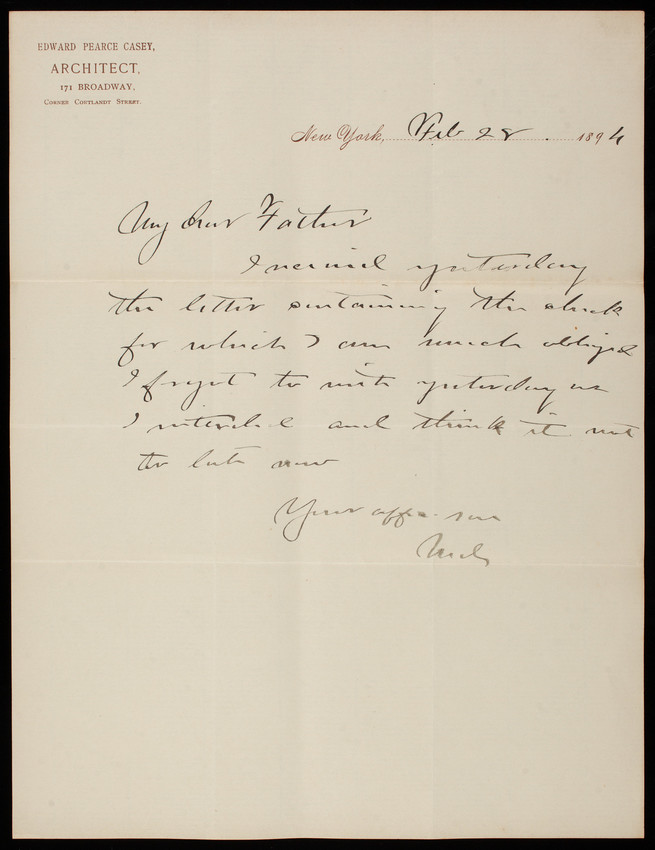 EDWARD PEARCE CASEY,
ARCHITECT,
171 BROADWAY,
CORNER CORTLANDT STREET.
New York, Feb 28. 1894
My dear Father
I received yesterday
the letter containing the check
for which I am much obliged
I forgot to write yesterday as
I intended and think it not
too late now
Your affe. son
Ned